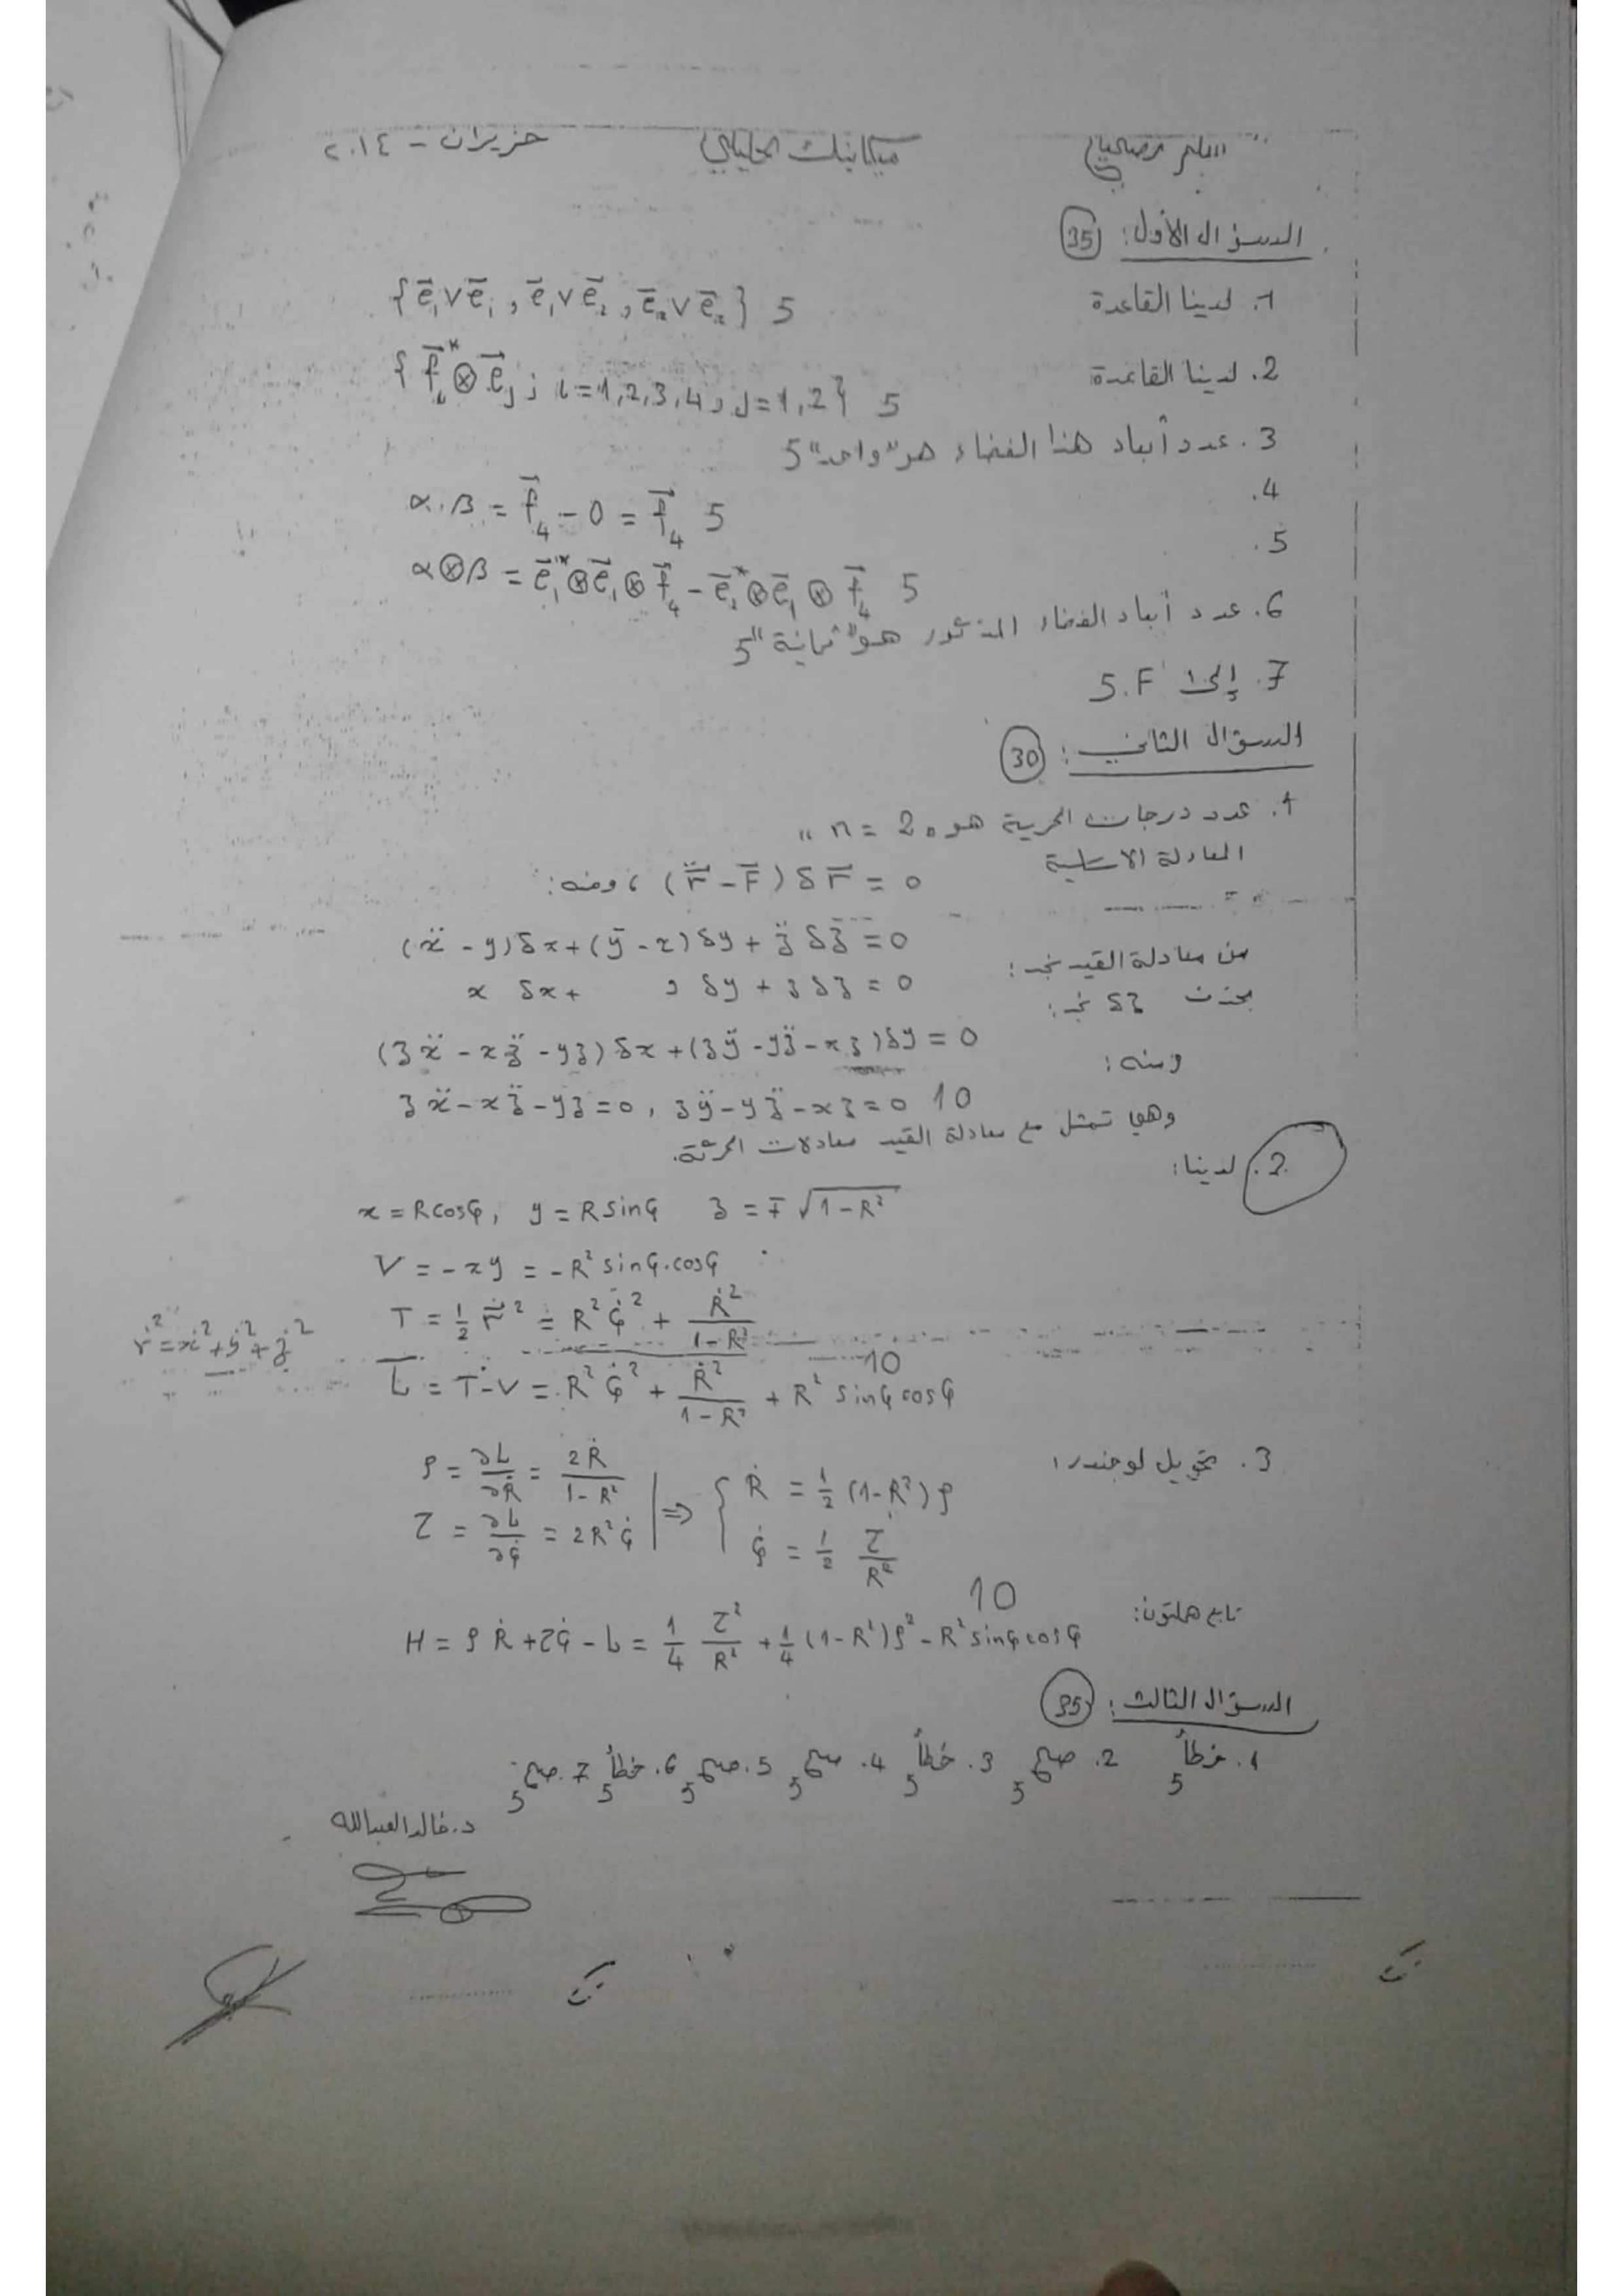 سلم تصحيح ميكانيك تحليلي حزيران - ٢٠١٤
السؤال الأول: (35)
1. لدينا القاعدة {e̅₁∨e̅₁, e̅₁∨e̅₂, e̅₂∨e̅₂} 5
2. لدينا القاعدة {f̅ᵢ*⊗e̅ⱼ; i=1,2,3,4, j=1,2} 5
3. عدد أبعاد هذا الفضاء هو "واحد" 5
4. α.β = f̅₄ - 0 = f̅₄ 5
5. α⊗β = e̅₁*⊗e̅₁⊗f̅₄ - e̅₂*⊗e̅₁⊗f̅₄ 5
6. عدد أبعاد الفضاء المذكور هو "ثمانية" 5
7. إلى F. 5
السؤال الثاني: (30)
1. عدد درجات الحرية هو "n = 2"
المعادلة الأساسية (r̅̈ - F̅) δr̅ = 0 ، ومنه:
(ẍ - y)δx + (ÿ - x)δy + z̈ δz = 0
من معادلة القيد نجد: x δx + y δy + z δz = 0
بحذف δz نجد:
(z ẍ - x z̈ - yz)δx + (z ÿ - y z̈ - xz)δy = 0
ومنه:
z ẍ - x z̈ - yz = 0, z ÿ - y z̈ - xz = 0 10
وهي تمثل مع معادلة القيد معادلات الحركة.
2. لدينا:
x = R cosφ, y = R sinφ z = ∓√(1-R²)
V = -xy = -R² sinφ.cosφ
T = ½ r̅̇² = R²φ̇² + Ṙ²/(1-R²)
ṙ² = ẋ² + ẏ² + ż²
L = T - V = R²φ̇² + Ṙ²/(1-R²) + R² sinφ cosφ 10
3. تحويل لوجندر:
ρ = ∂L/∂Ṙ = 2Ṙ/(1-R²) ⇒ { Ṙ = ½(1-R²)ρ
τ = ∂L/∂φ̇ = 2R²φ̇ φ̇ = ½ τ/R²
تابع هملتون: 10
H = ρṘ + τφ̇ - L = ¼ τ²/R² + ¼(1-R²)ρ² - R² sinφ cosφ
السؤال الثالث: (35)
1. خطأ 5 2. صح 5 3. خطأ 5 4. صح 5 5. صح 5 6. خطأ 5 7. صح 5
د. خالد العبدالله